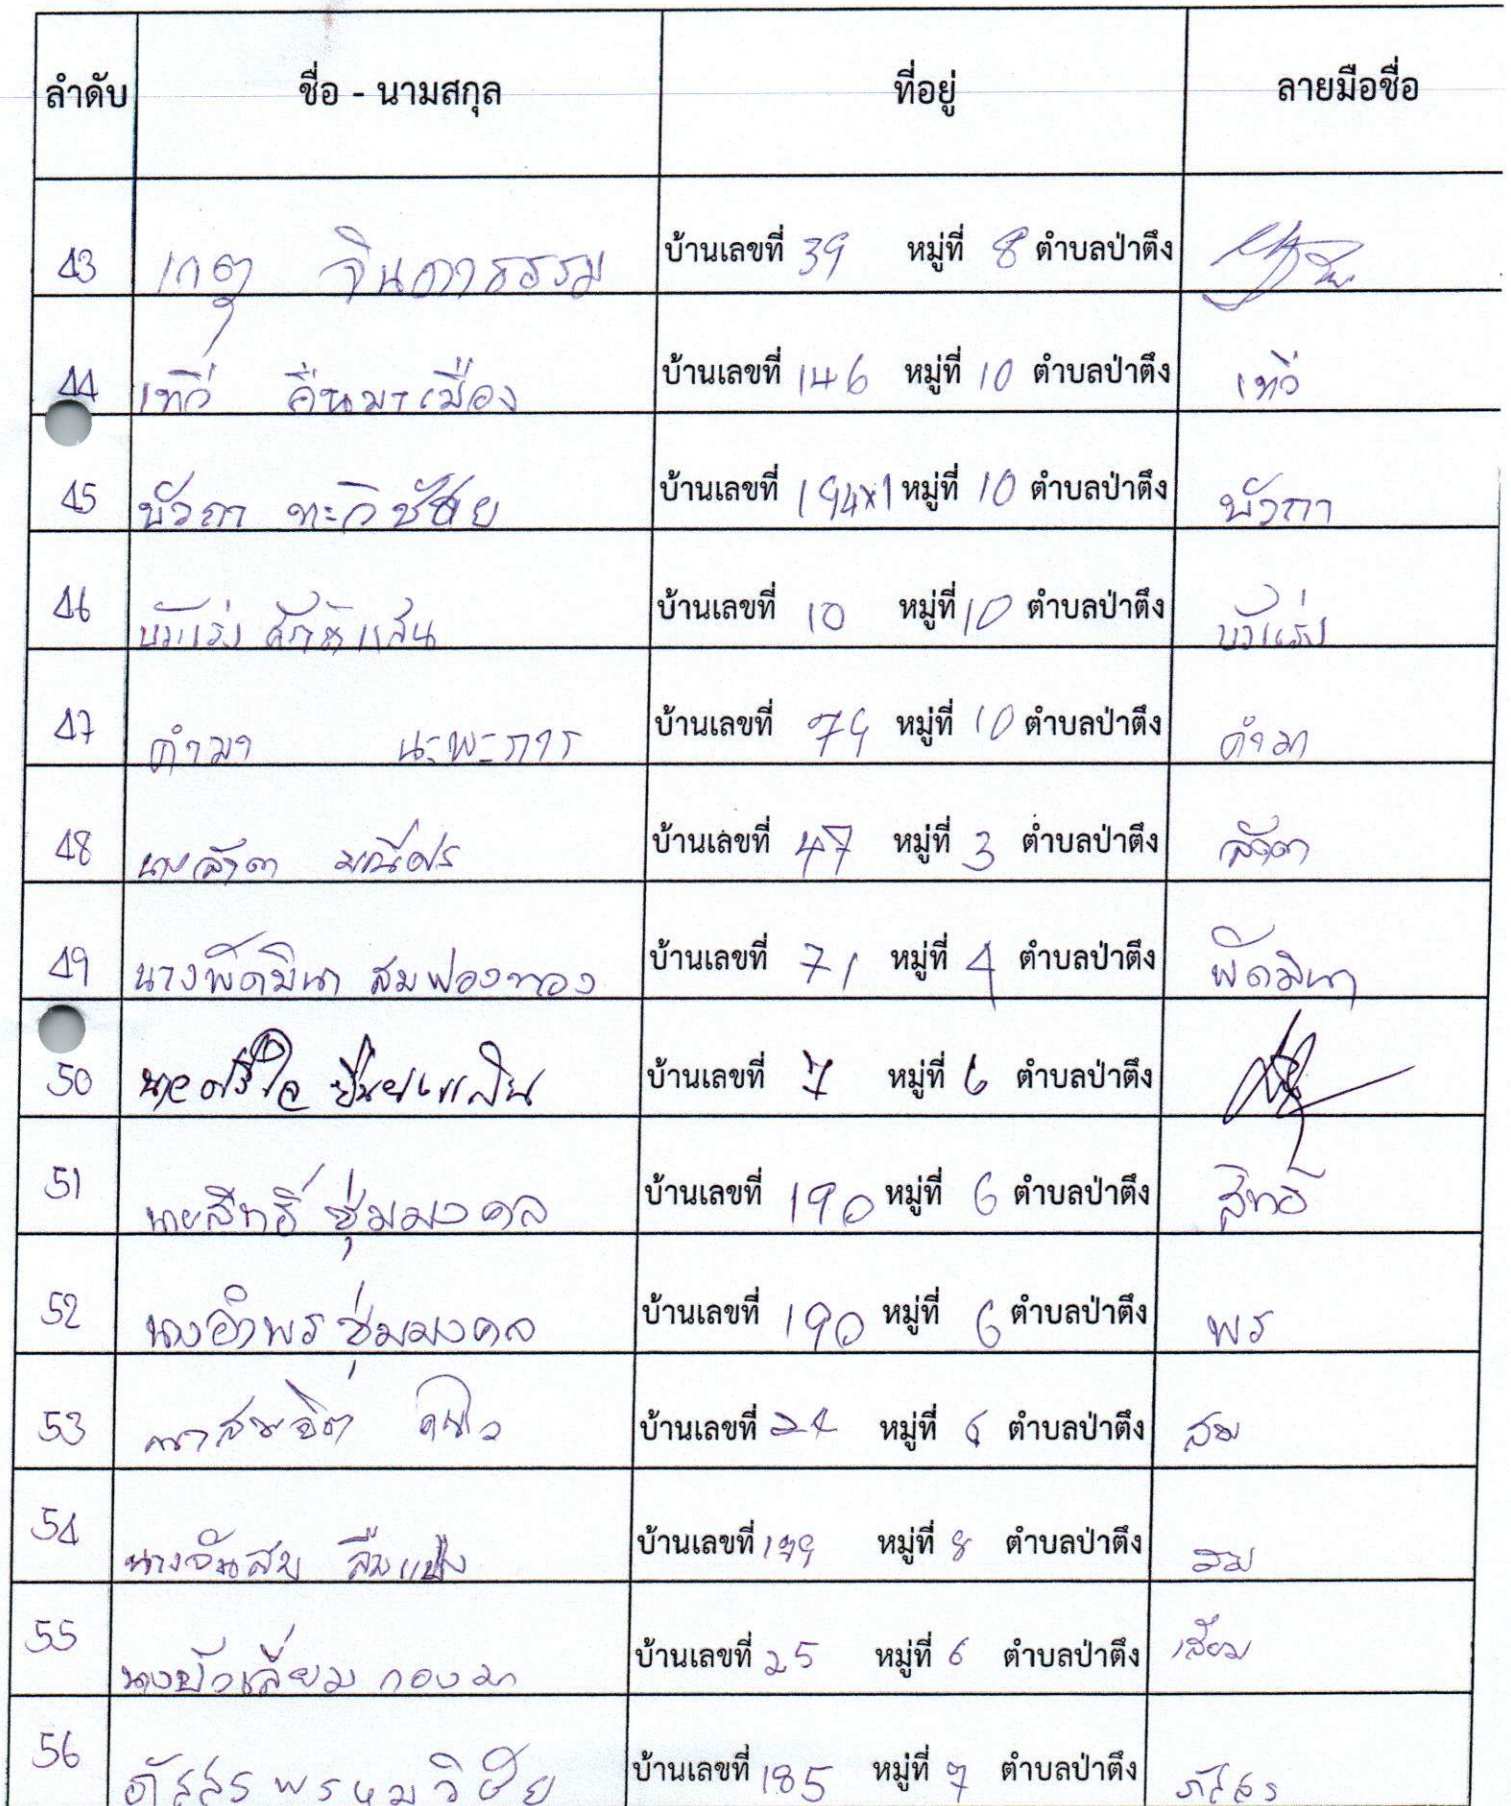 ลำดับ ชื่อ - นามสกุล ที่อยู่ ลายมือชื่อ
43 เกตุ จินดาธรรม บ้านเลขที่ 39 หมู่ที่ 8 ตำบลป่าตึง
44 เทวี คืนมาเมือง บ้านเลขที่ 146 หมู่ที่ 10 ตำบลป่าตึง เทวี
45 บัวถา ทะวิชัย บ้านเลขที่ 194x1 หมู่ที่ 10 ตำบลป่าตึง บัวถา
46 บ้านเลขที่ 10 หมู่ที่ 10 ตำบลป่าตึง
47 คำมา นะพะการ บ้านเลขที่ 74 หมู่ที่ 10 ตำบลป่าตึง คำมา
48 บ้านเลขที่ 47 หมู่ที่ 3 ตำบลป่าตึง
49 นางพัดมินา สมฟองทอง บ้านเลขที่ 71 หมู่ที่ 4 ตำบลป่าตึง พัดมินา
50 บ้านเลขที่ 7 หมู่ที่ 6 ตำบลป่าตึง
51 นายสิทธิ์ ชุ่มมงคล บ้านเลขที่ 190 หมู่ที่ 6 ตำบลป่าตึง สิทธิ
52 นางอำพร ชุ่มมงคล บ้านเลขที่ 190 หมู่ที่ 6 ตำบลป่าตึง พร
53 บ้านเลขที่ 24 หมู่ที่ 6 ตำบลป่าตึง สม
54 นางจันสม บ้านเลขที่ 179 หมู่ที่ 8 ตำบลป่าตึง สม
55 นางบัวเลี่ยม กองมา บ้านเลขที่ 25 หมู่ที่ 6 ตำบลป่าตึง เลี่ยม
56 ภัสสร พรหมวิชัย บ้านเลขที่ 185 หมู่ที่ 7 ตำบลป่าตึง ภัสสร